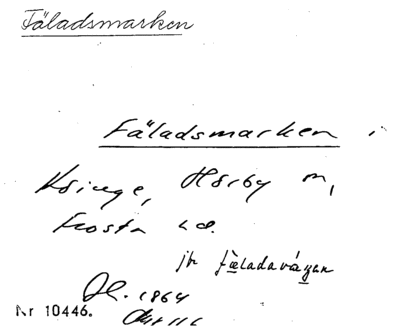 Fäladsmarken
Fäladsmarken i
Hörby
Frosta hd.
jfr fäladavägen
1864
Nr 10446.